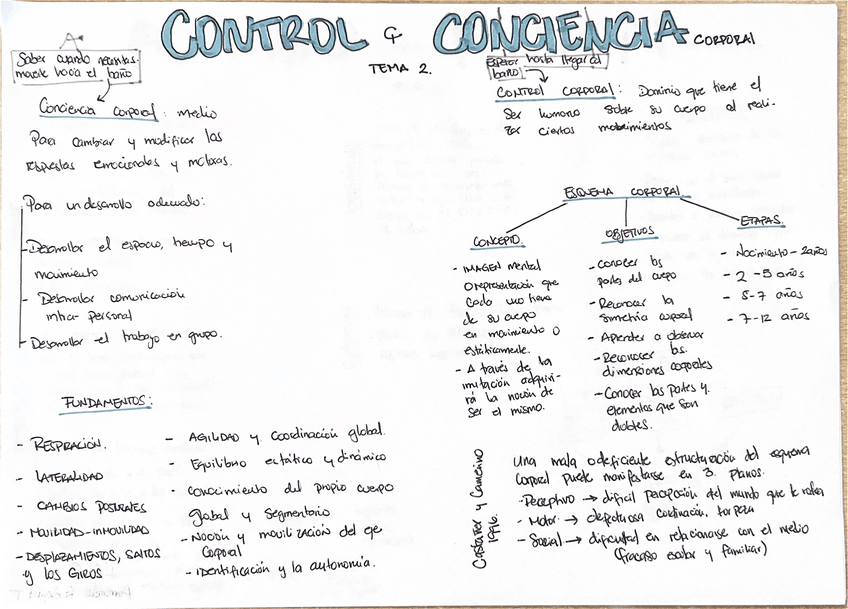 CONTROL & CONCIENCIA CORPORAL
TEMA 2.
Saber cuando necesitas
moverte hacia el baño
Conciencia corporal: medio
Para cambiar y modificar las
respuestas emocionales y motoras.
Para un desarrollo adecuado:
- Desarrollar el espacio, tiempo y
movimiento
- Desarrollar comunicación
intra-personal
- Desarrollar el trabajo en grupo.
FUNDAMENTOS:
- RESPIRACIÓN.
- LATERALIDAD
- CAMBIOS POSTURALES
- MOVILIDAD-INMOVILIDAD
- DESPLAZAMIENTOS, SALTOS
y LOS GIROS
- AGILIDAD y Coordinación global.
- Equilibrio estático y dinámico
- Conocimiento del propio cuerpo
global y Segmentario
- Noción y movilización del eje
Corporal
- Identificación y la autonomía.
Esperar hasta llegar al
baño
CONTROL CORPORAL: Dominio que tiene el
Ser humano sobre su cuerpo al reali-
zar ciertos movimientos
ESQUEMA CORPORAL
CONCEPTO.
- IMAGEN mental
o representación que
cada uno tiene
de su cuerpo
en movimiento o
estáticamente.
- A través de la
imitación adquiri-
rá la noción de
ser el mismo.
OBJETIVOS
- Conocer las
partes del cuerpo
- Reconocer la
simetría corporal
- Aprender a observar
- Reconocer las
dimensiones corporales
- Conocer las partes y
elementos que son
dobles.
ETAPAS.
- Nacimiento - 2 años
- 2 - 5 años
- 5-7 años
- 7-12 años
Castañer y Camerino
1996.
Una mala o deficiente estructuración del esquema
corporal puede manifestarse en 3 planos.
- Perceptivo → difícil percepción del mundo que le rodea
- Motor → defectuosa coordinación, torpeza
- Social → dificultad en relacionarse con el medio
(fracaso escolar y familiar)